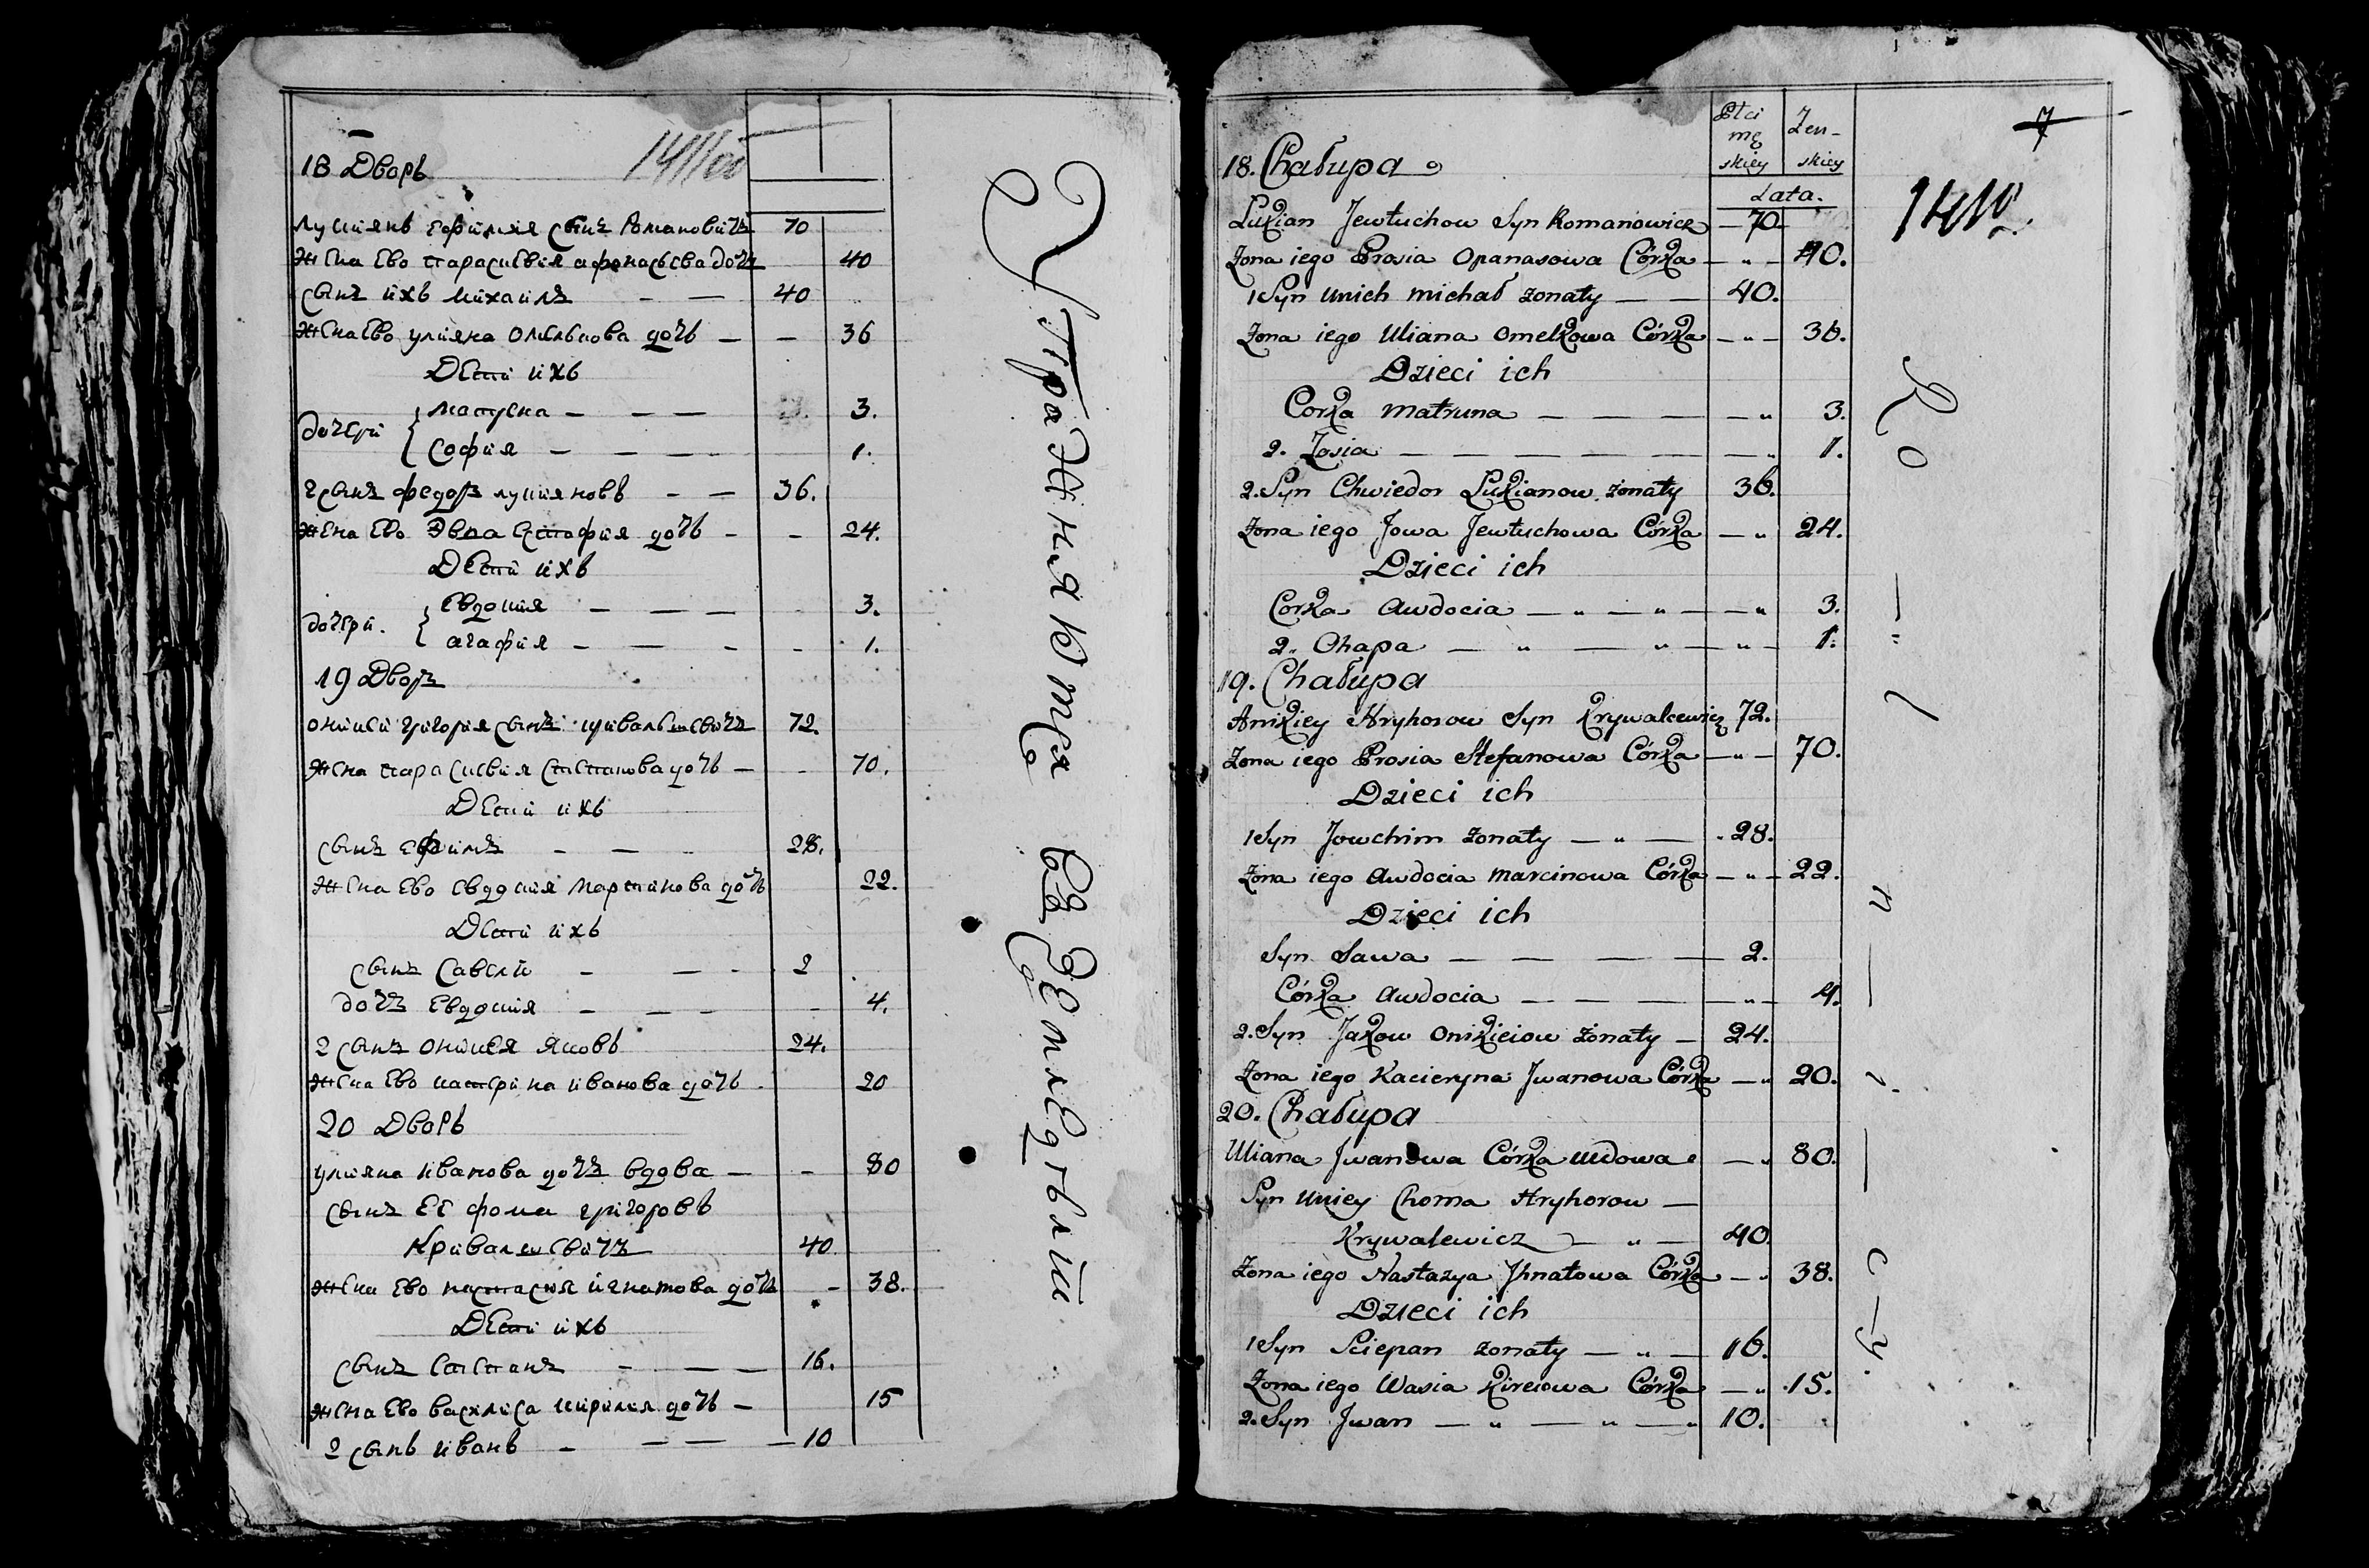 18 Дворъ
Лукіянъ Ефимія сынъ Романовичъ 70
Жена Ево парасковія афонасьева дочь 40
сынъ ихъ михаилъ — — 40
Жена Ево уліяна Омельянова дочь — — 36
Дети ихъ
дочери { матрена — — — 3.
София — — — 1.
2 сынъ федоръ лукияновъ — — 36.
Жена Ево Эва Естафия дочь — - 24.
Дети ихъ
дочери. { Евдокия — — — 3.
агафия — — - - 1.
19 Дворъ
онікей григория сынъ кривальцевичъ 72.
Жена парасковия Степанова дочь — 70.
Дети ихъ
сынъ Ефимъ — — 28.
Жена Ево Евдокия мартинова дочь 22.
Дети ихъ
сынъ Савели — — - 2
дочъ Евдокия — — - 4.
2 сынъ оникея яковъ 24.
Жена Ево катерина иванова дочь 20
20 Дворъ
улияна иванова дочъ вдова — - 80
сынъ ЕЕ фома григоровъ
Кривалцевичъ 40
Жена Ево настасия игнатова дочь - 38.
Дети ихъ
сынъ Степанъ — — 16.
Жена Ево василиса кирилия дочь — 15
2 сынъ иванъ — — — 10
Упражняются въ Земледѣлии
Płci mę skiey
Zen- skiey
7
18. Chałupa
Lata.
Lukian Jewtuchow Syn Romanowicz — 70.
Zona iego Prosia Opanasowa Córka — „ — 40.
1 Syn unich michał zonaty — — 40.
Zona iego Uliana Omelkowa Córka — „ — 36.
Dzieci ich
Corka matruna — — — — „ 3.
2. Zosia — — — — — — „ 1.
2. Syn Chwiedor Lukianow zonaty 36.
Zona iego Jowa Jewtuchowa Córka — „ 24.
Dzieci ich
Corka Awdocia — „ — „ — — „ 3.
2. Ohapa — „ — „ — „ — 1.
19. Chałupa
Anikiey Hryhorow Syn Krywalcewicz 72.
Zona iego Prosia Stefanowa Córka — „ — 70.
Dzieci ich
1 Syn Jowchim zonaty — „ — 28.
Zona iego Awdocia Marcinowa Córka — „ — 22.
Dzieci ich
Syn Sawa — — — — 2.
Córka Awdocia — — — — „ — 4.
2. Syn Jakow Onikieiow zonaty — 24.
Zona iego Kacieryna Jwanowa Córka — „ 20.
20. Chałupa
Uliana Jwanowa Córka wdowa — „ 80.
Syn uniey Choma Hryhorow —
Krywalewicz — „ — 40.
Zona iego Nastazya Jhnatowa Córka — „ 38.
Dzieci ich
1 Syn Sciepan zonaty — „ — 16.
Zona iego Wasia Kireiowa Córka — „ 15.
2. Syn Jwan — „ — „ — „ 10.
R o — „ l n — i. — c — y.